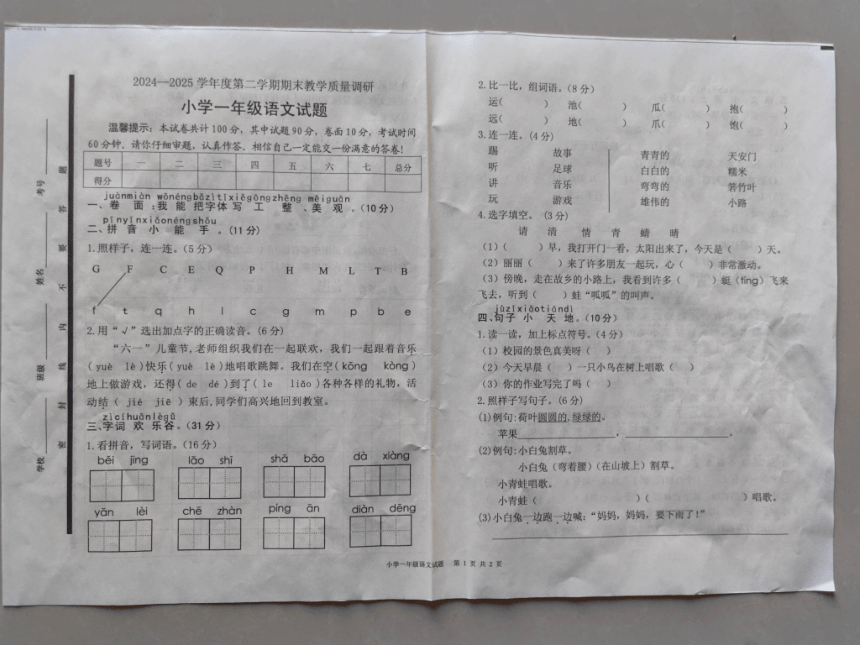 2024—2025 学年度第二学期期末教学质量调研
小学一年级语文试题
温馨提示：本试卷共计100分，其中试题90分，卷面10分，考试时间
60分钟。请你仔细审题，认真作答。相信自己一定能交一份满意的答卷！
题号 一 二 三 四 五 六 七 总分
得分
juànmiàn wǒnéngbǎzìtǐxiěgōngzhěng měiguān
一、卷 面：我 能 把字体 写 工 整 、美 观 。(10分)
pīnyīnxiǎonéngshǒu
二、拼 音 小 能 手 。(11分)
1.照样子，连一连。(5分)
G F C E Q P H M L T B
f t q h l c g m p b e
2.用“√”选出加点字的正确读音。(6分)
“六一”儿童节,老师组织我们在一起联欢，我们一起跟着音乐
(yuè lè)快乐(yuè lè)地唱歌跳舞。我们在空(kōng kòng)
地上做游戏，还得(de dé)到了(le liǎo)各种各样的礼物，活
动结(jié jiē)束后,同学们高兴地回到教室。
zìcíhuānlègǔ
三、字词 欢 乐谷。(31分)
1.看拼音，写词语。(16分)
běi jīng lǎo shī shū bāo dà xiàng
yǎn lèi chē zhàn píng ān diàn dēng
学校 班级 姓名 考号
密 封 线 内 不 要 答 题
2.比一比，组词语。(8分)
运( ) 池( ) 瓜( ) 抱( )
远( ) 地( ) 爪( ) 饱( )
3.连一连。(4分)
踢 故事 青青的 天安门
听 足球 白白的 糯米
讲 音乐 弯弯的 箬竹叶
玩 游戏 雄伟的 小路
4.选字填空。(3分)
请 清 情 青 蜻 晴
(1)( )早，我打开门一看，太阳出来了，今天是( )天。
(2)丽丽( )来了许多朋友一起玩，心( )非常激动。
(3)傍晚，走在故乡的小路上，我看到许多( )蜓(tíng)飞来
飞去，听到( )蛙“呱呱”的叫声。
jùzǐxiǎotiāndì
四、句子 小 天 地。(10分)
1.读一读，加上标点符号。(4分)
(1)校园的景色真美呀( )
(2)今天早晨( )一只小鸟在树上唱歌( )
(3)你的作业写完了吗( )
2.照样子写句子。(6分)
(1)例句:荷叶圆圆的,绿绿的。
苹果 , 。
(2)例句:小白兔割草。
小白兔(弯着腰)(在山坡上)割草。
小青蛙唱歌。
小青蛙( )( )唱歌。
(3)小白兔一边跑一边喊:“妈妈，妈妈，要下雨了!”
小学一年级语文试题 第 1 页 共 2 页